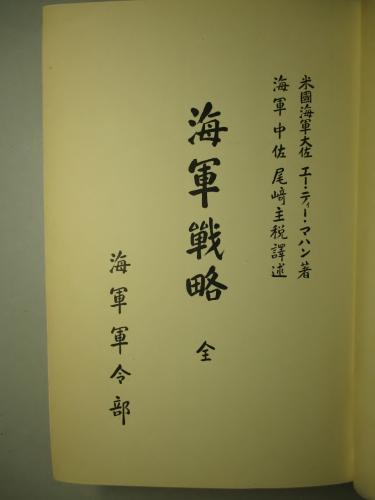 米國海軍大佐 エー・ティー・マハン 著
海軍中佐 尾﨑主税 譯述
海軍戰略 全
海軍軍令部